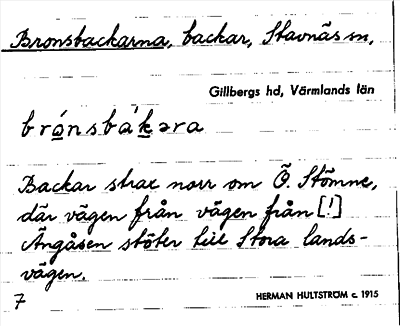 Bronsbackarna, backar, Stavnäs sn,
Gillbergs hd, Värmlands län
brónsbá'kəra
Backar strax norr om Ö. Stömne,
där vägen från vägen från [!]
Ängåsen stöter till Stora lands-
vägen.
7
HERMAN HULTSTRÖM c. 1915